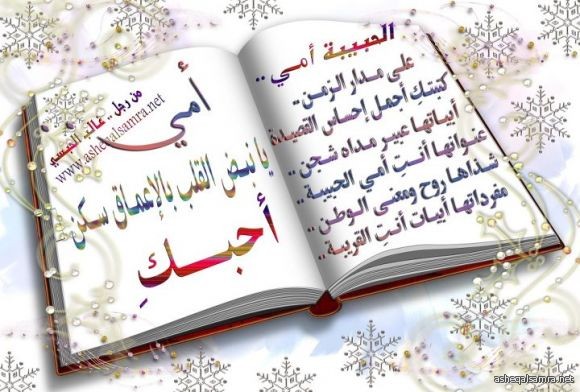 الحبيبة أمي ..
على مدار الزمن ..
كتبتكِ أجمل إحساس القصيدة
أبياتها عبير مداه شجن ..
عنوانها أنتِ أمي الحبيبة ..
شذاها روح ومعنى الوطن ..
مفرداتها أبيات أنتِ القريبة ..
من رجل .
www.asheqalsamra.net
أمي
يا نبض القلب بالإعماق سكن
أحبــكِ
asheqalsamra.net